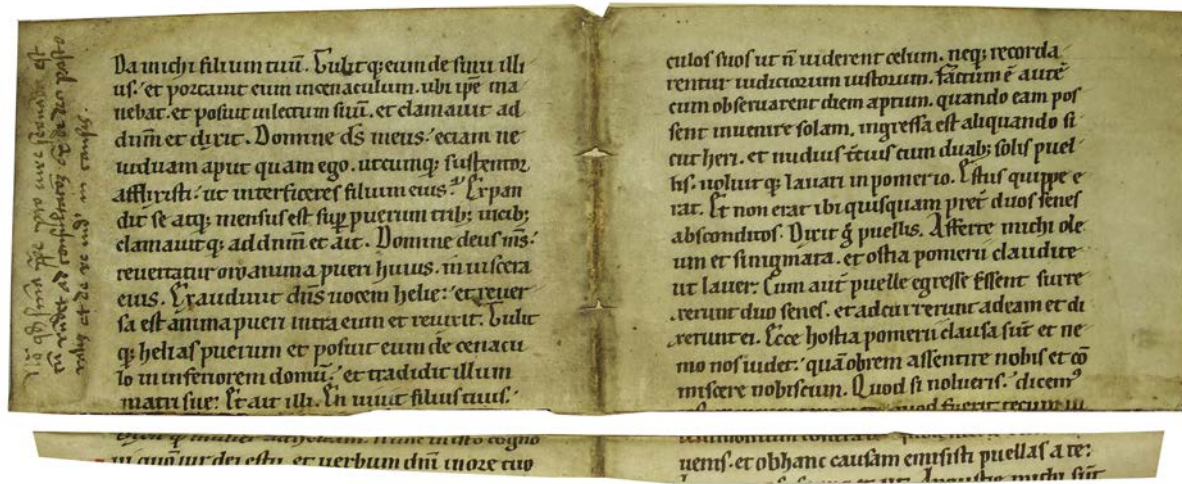 Da michi filium tuū. Tulitq; eum de sinu illi
us. et portavit eum in cenaculum. ubi ipe ma
nebat. et posuit in lectum suū. et clamavit ad
dnm̄ et dixit. Domine ds̄ meus. eciam ne
viduam aput quam ego. utcumq; sustentor
afflixisti. ut interficeres filium eius. Expan
dit se atq; mensus est sup̄ puerum trib; vicib;
clamavitq; ad dnm̄ et ait. Domine deus ms̄.
revertatur oro anima pueri huius. in viscera
eius. Exaudivit dn̄s vocem helie. et rever
sa est anima pueri intra eum et revixit. Tulit
q; helias puerum et posuit eum de cenacu
lo in inferiorem domū. et tradidit illum
matri sue. Et ait illi. En vivit filius tuus.
mulier ad heliam. nunc in isto cogno
vi quōm vir dei es tu. et verbum dnī in ore tuo
culos suos ut n̄ viderent celum. neq; recorda
rentur iudiciorum iustorum. Factum ē autē
cum observarent diem aptum. quando eam pos
sent invenire solam. ingressa est aliquando si
cut heri. et nudius tcius cum duab; solis puel
lis. voluitq; lavari in pomerio. Estus quippe e
rat. Et non erat ibi quisquam pret̄ duos senes
absconditos. Dixit g̊ puellis. Afferte michi ole
um et smigmata. et ostia pomerii claudite
ut laver. Cum aut̄ puelle egresse essent surre
xerunt duo senes. et adcurrerunt ad eam et di
xerunt ei. Ecce hostia pomerii clausa sūt et ne
mo nos videt. quā obrem assentire nobis et cō
miscere nobiscum. Quod si nolueris. dicemꝰ
quod fuerit tecum iu
venis. et ob hanc causam emisisti puellas a te.
Angustie michi sūt